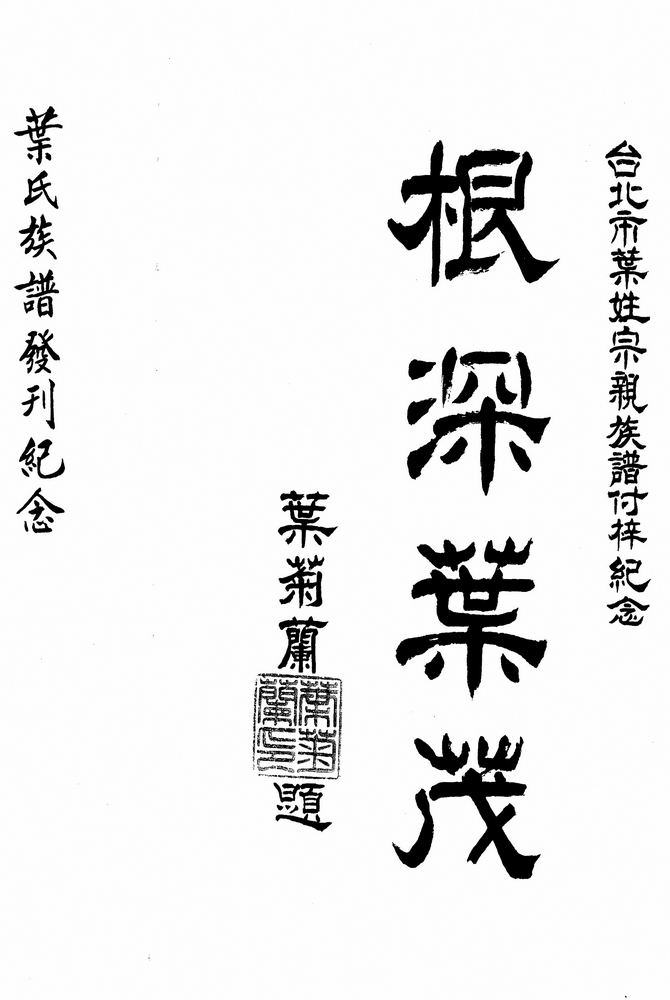 台北市葉姓宗親族譜付梓紀念
根深葉茂
葉菊蘭
葉菊蘭印
題
葉氏族譜發刊紀念